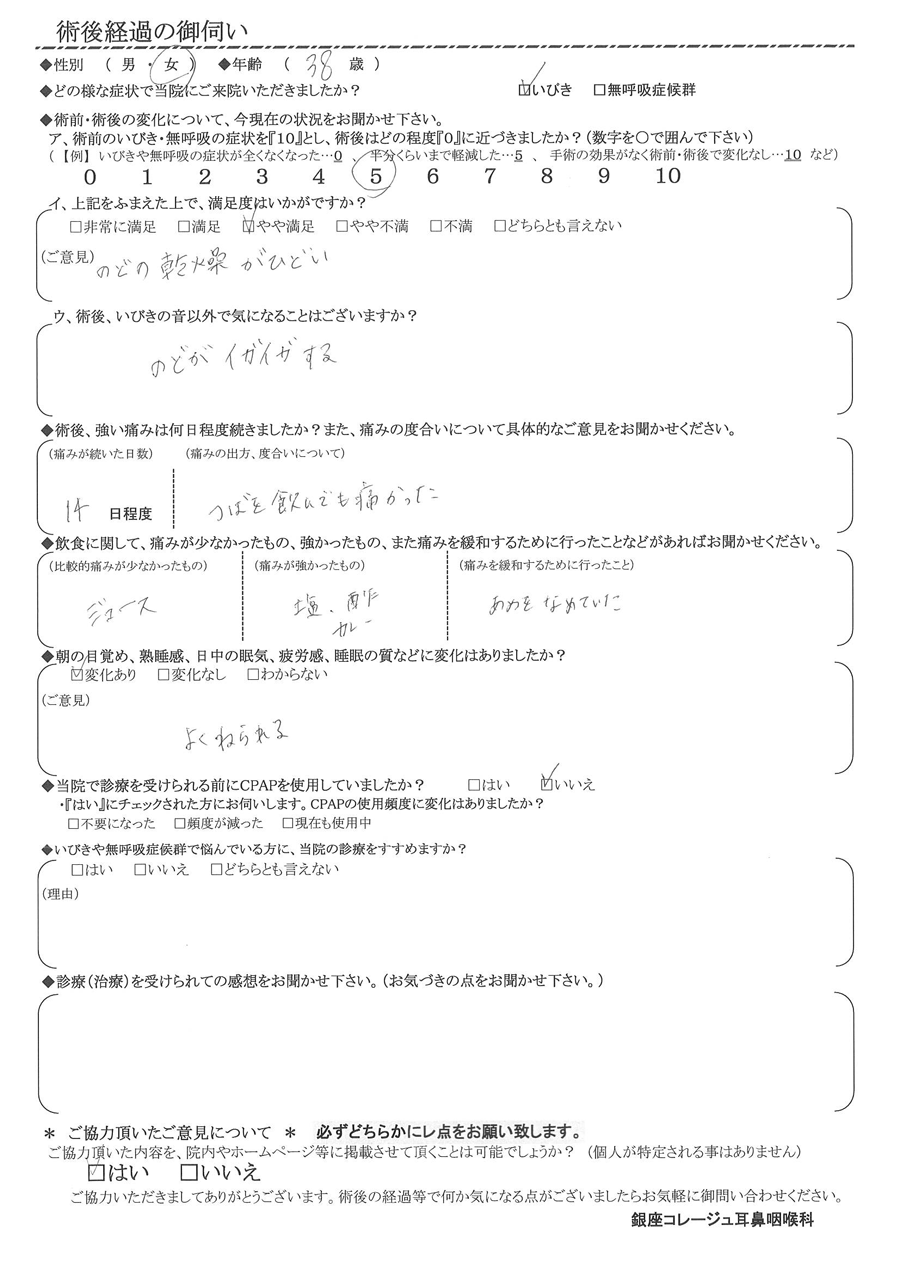 術後経過の御伺い
◆性別 （ 男 ・ 女 ） ◆年齢 （ 38 歳 ）
◆どの様な症状で当院にご来院いただきましたか？ ☑いびき □無呼吸症候群
◆術前・術後の変化について、今現在の状況をお聞かせ下さい。
ア、術前のいびき・無呼吸の症状を『10』とし、術後はどの程度『0』に近づきましたか？（数字を〇で囲んで下さい）
（【例】 いびきや無呼吸の症状が全くなくなった…0 、 半分くらいまで軽減した…5 、 手術の効果がなく術前・術後で変化なし…10 など）
0 1 2 3 4 5 6 7 8 9 10
イ、上記をふまえた上で、満足度はいかがですか？
□非常に満足 □満足 ☑やや満足 □やや不満 □不満 □どちらとも言えない
（ご意見） のどの乾燥がひどい
ウ、術後、いびきの音以外で気になることはございますか？
のどがイガイガする
◆術後、強い痛みは何日程度続きましたか？また、痛みの度合いについて具体的なご意見をお聞かせください。
（痛みが続いた日数） （痛みの出方、度合いについて）
14 日程度 つばを飲んでも痛かった
◆飲食に関して、痛みが少なかったもの、強かったもの、また痛みを緩和するために行ったことなどがあればお聞かせください。
（比較的痛みが少なかったもの） （痛みが強かったもの） （痛みを緩和するために行ったこと）
ジュース 塩、酢 あめをなめていた
カレー
◆朝の目覚め、熟睡感、日中の眠気、疲労感、睡眠の質などに変化はありましたか？
☑変化あり □変化なし □わからない
（ご意見）
よくねられる
◆当院で診療を受けられる前にCPAPを使用していましたか？ □はい ☑いいえ
・『はい』にチェックされた方にお伺いします。CPAPの使用頻度に変化はありましたか？
□不要になった □頻度が減った □現在も使用中
◆いびきや無呼吸症候群で悩んでいる方に、当院の診療をすすめますか？
□はい □いいえ □どちらとも言えない
（理由）
◆診療（治療）を受けられての感想をお聞かせ下さい。（お気づきの点をお聞かせ下さい。）
＊ ご協力頂いたご意見について ＊ 必ずどちらかにレ点をお願い致します。
ご協力頂いた内容を、院内やホームページ等に掲載させて頂くことは可能でしょうか？ （個人が特定される事はありません）
☑はい □いいえ
ご協力いただきましてありがとうございます。術後の経過等で何か気になる点がございましたらお気軽に御問い合わせください。
銀座コレージュ耳鼻咽喉科